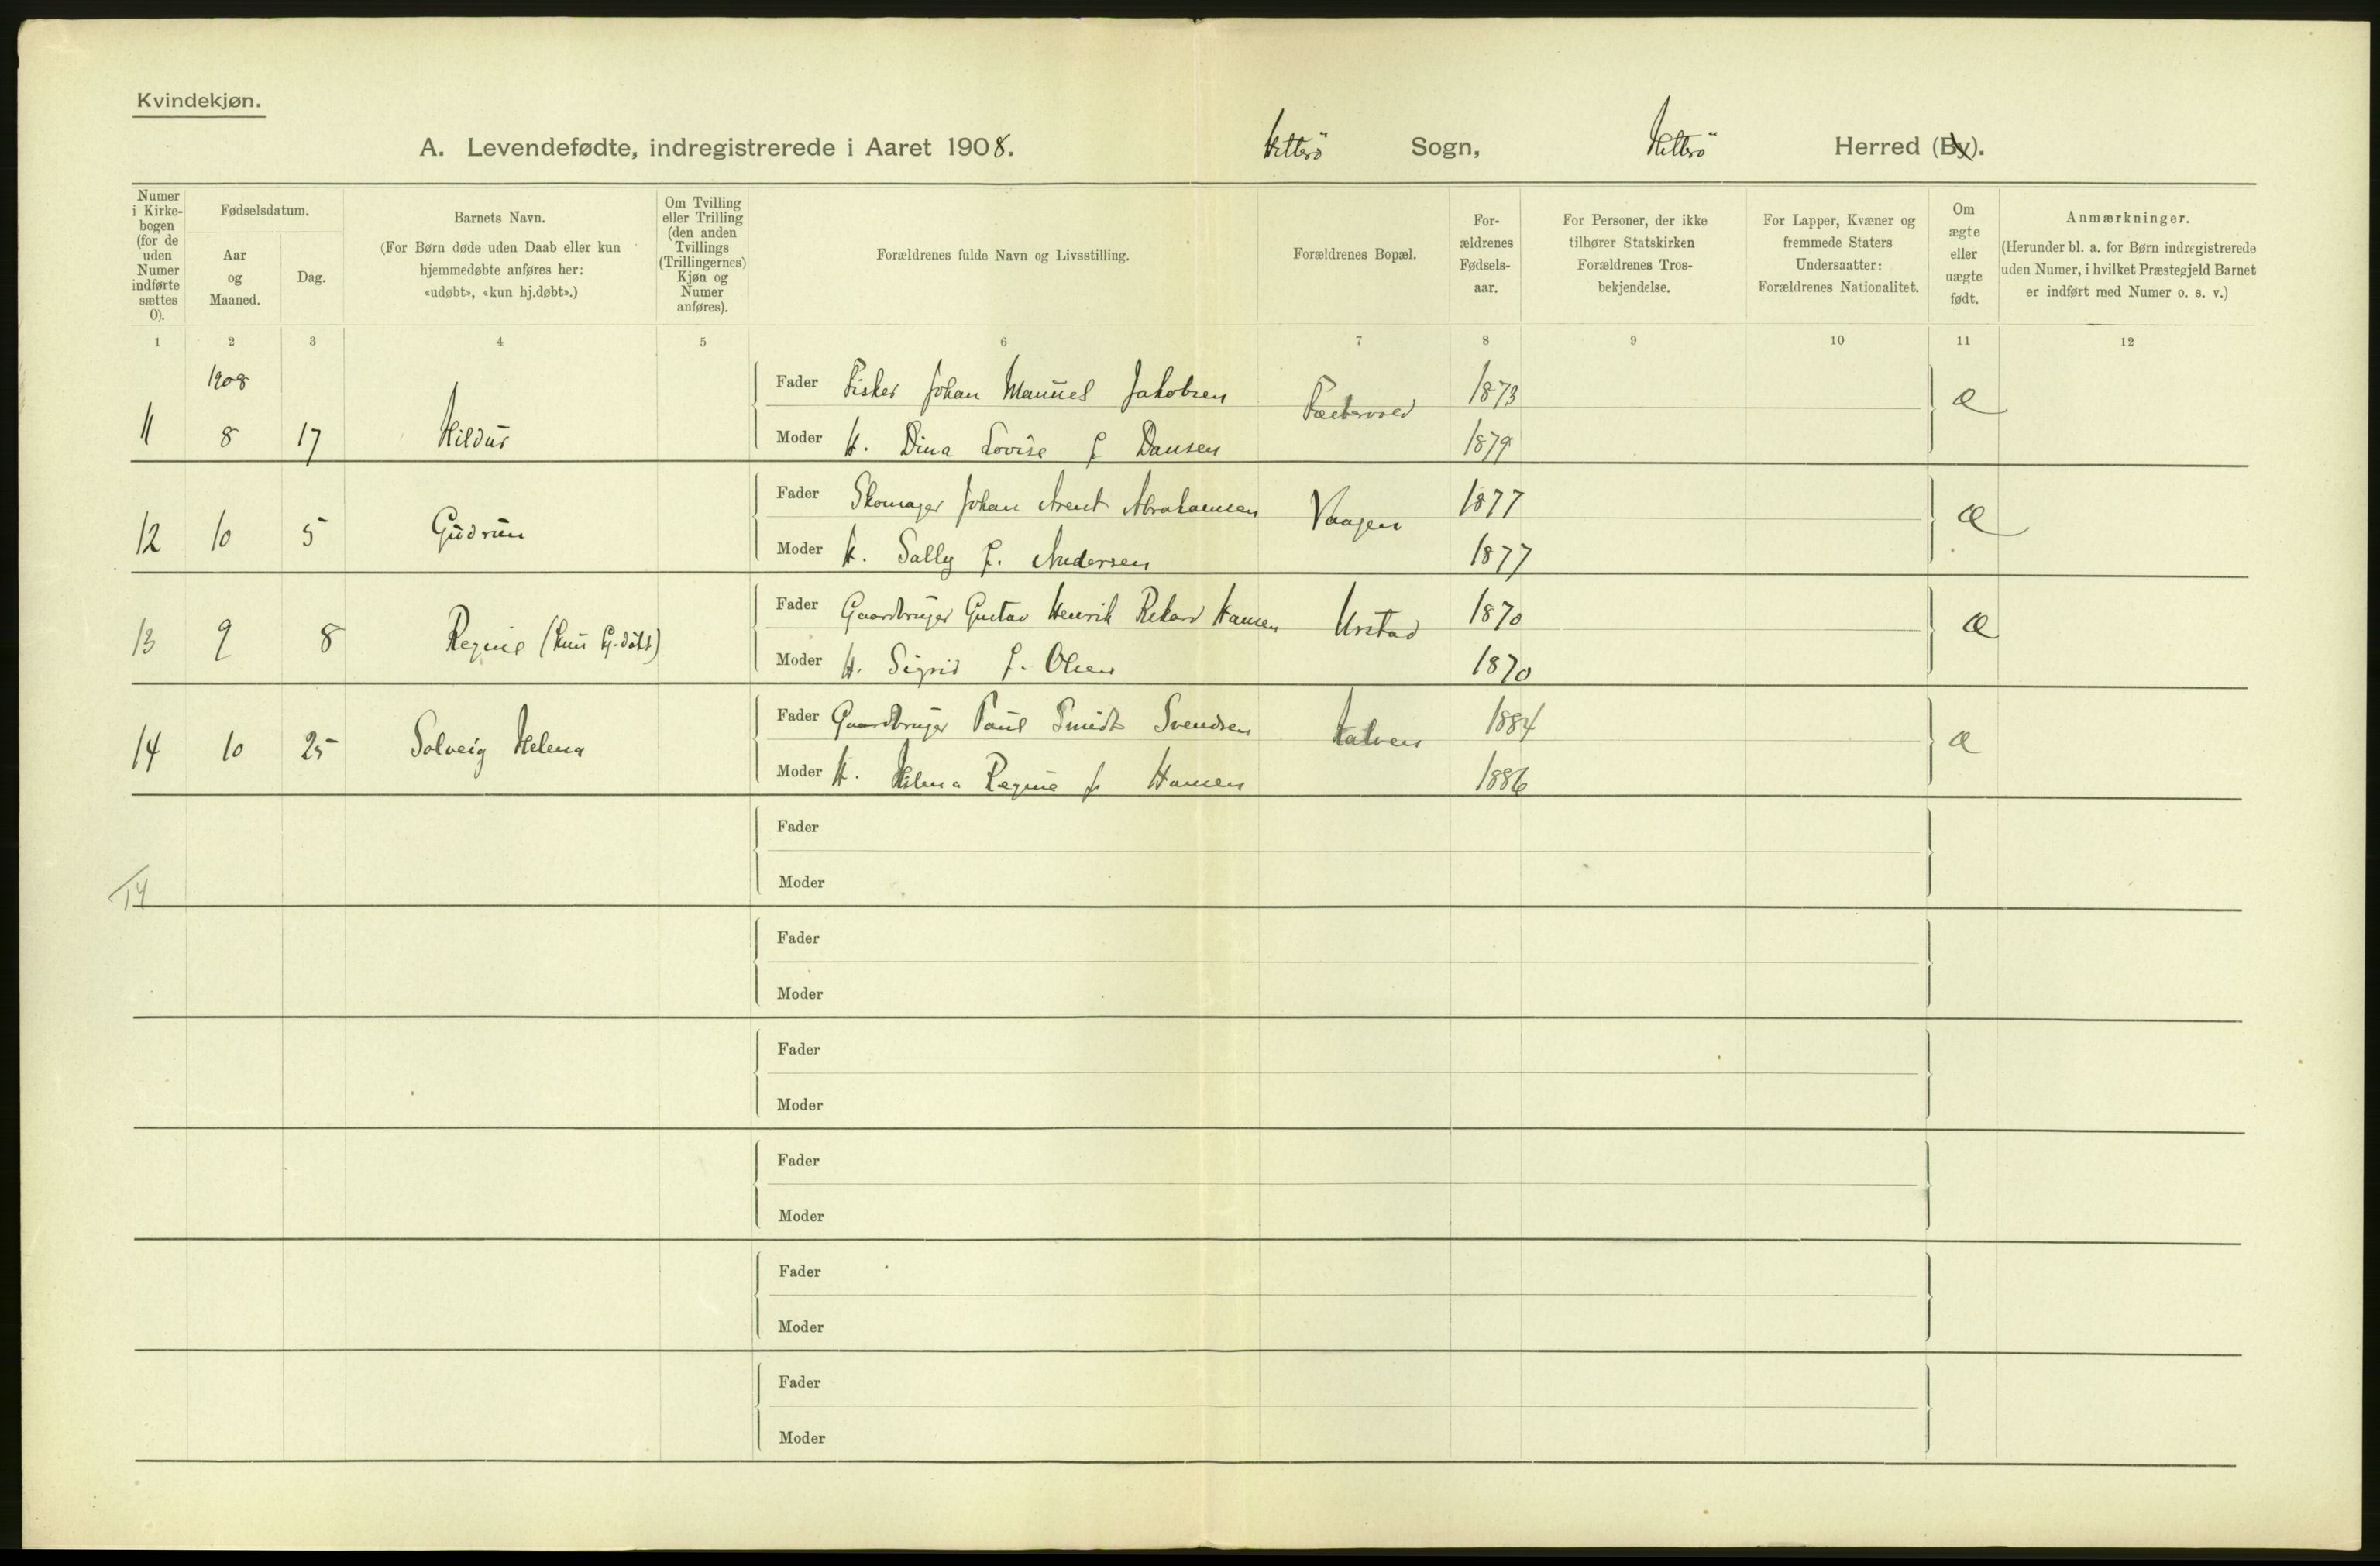 Kvindekjøn.
A. Levendefødte, indregistrerede i Aaret 1908. Hitterö Sogn, Hitterö Herred (By).
Numer i Kirke-bogen (for de uden Numer indførte sættes 0).
Fødselsdatum.
Aar og Maaned.
Dag.
Barnets Navn.
(For Børn døde uden Daab eller kun hjemmedøbte anføres her: «udøbt», «kun hj.døbt».)
Om Tvilling eller Trilling (den anden Tvillings (Trillingernes) Kjøn og Numer anføres).
Forældrenes fulde Navn og Livsstilling.
Forældrenes Bopæl.
For-ældrenes Fødsels-aar.
For Personer, der ikke tilhører Statskirken Forældrenes Tros-bekjendelse.
For Lapper, Kvæner og fremmede Staters Undersaatter: Forældrenes Nationalitet.
Om ægte eller uægte født.
Anmærkninger.
(Herunder bl. a. for Børn indregistrerede uden Numer, i hvilket Præstegjeld Barnet er indført med Numer o. s. v.)
1 2 3 4 5 6 7 8 9 10 11 12
1908
Fader Fisker Johan Manuel Jakobsen 1873
11 8 17 Hildur æ
Moder H. Dina Lovise f Dansen 1879
Fader Skomager Johan Arent Abrahamsen Vaagen 1877
12 10 5 Gudrun æ
Moder H. Sally f. Andersen 1877
Fader Gaardbruger Gustav Henrik Rikard Hansen Urstad 1870
13 9 8 Regine (kun hj.døbt) æ
Moder H. Sigrid f. Olsen 1870
Fader Gaardbruger Paul Smidt Svendsen Kalven 1884
14 10 25 Solveig Helena æ
Moder H. Helena Regine f. Hansen 1886
Fader
14
Moder
Fader
Moder
Fader
Moder
Fader
Moder
Fader
Moder
Fader
Moder